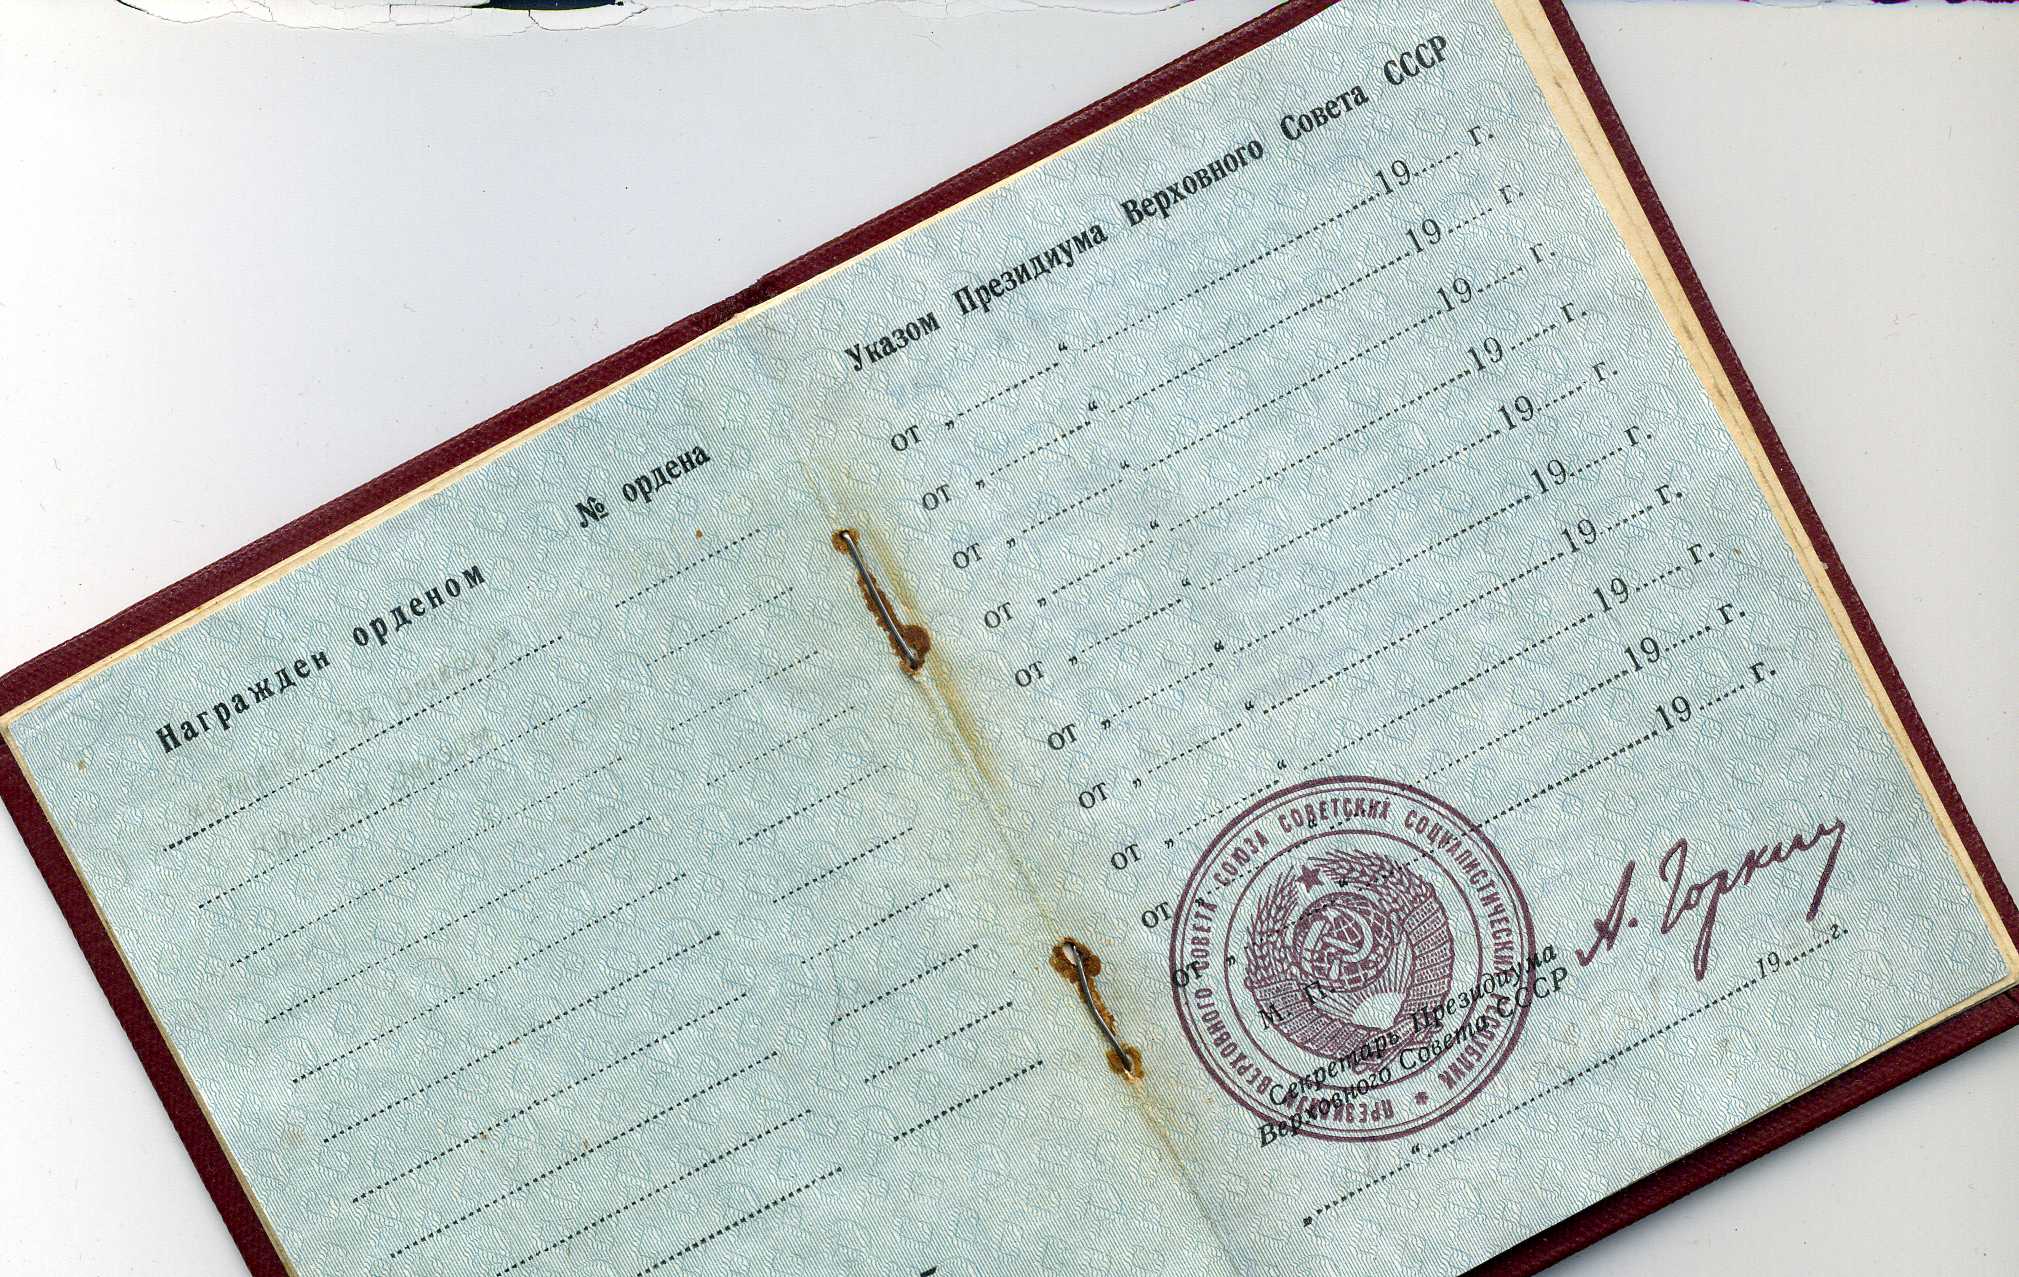 Награжден орденом № ордена
медалью „За отвагу"
Указом Президиума Верховного Совета СССР
от „ “ 19 г.
от „ “ 19 г.
от „ “ 19 г.
от „ “ 19 г.
от „ “ 19 г.
от „ “ 19 г.
от „ “ 19 г.
от „ “ 19 г.
от „ “ 19 г.
от „ “ 19 г.
ПРЕЗИДИУМ ВЕРХОВНОГО СОВЕТА СОЮЗА СОВЕТСКИХ СОЦИАЛИСТИЧЕСКИХ РЕСПУБЛИК
М. П.
Секретарь Президиума
Верховного Совета СССР
А. Горкин
„ “ 19 г.